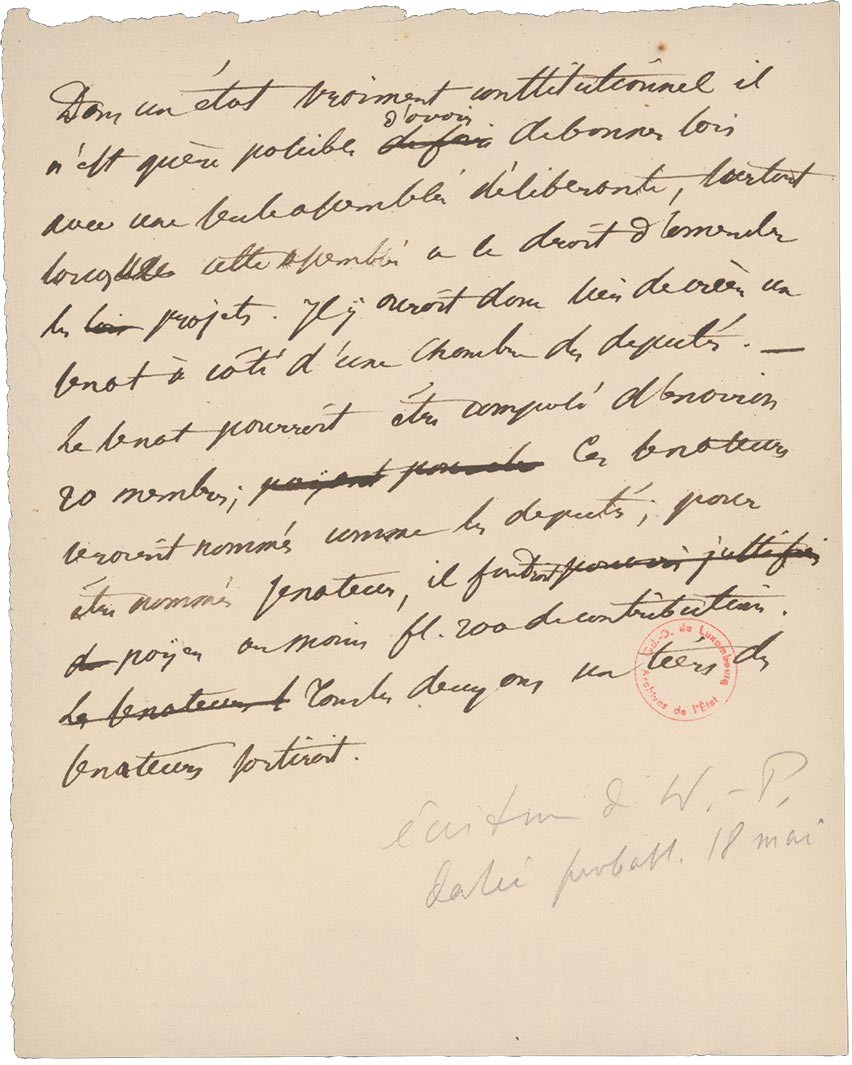 Dans un état vraiment constitutionnel il
d'avoir
n'est guère possible de faire de bonnes lois
avec une seule assemblée déliberante, surtout
lorsque cette assemblée a le droit d'émender
les lois projets. Il y auroit donc lieu de créer un
senat à côté d'une Chambre des deputés. —
Le senat pourroit être composé d'environ
20 membres; payant pour les Ces senateurs
seroient nommés comme les deputés; pour
être nommés senateur, il faudroit pouvoir justifier
de payer au moins fl. 200 de contributions.
Les senateurs s Tous les deux ans un tiers des
senateurs sortiroit.
Gd.-D. de Luxembourg
Archives de l'État
écriture de W.-P.
datée probabl. 18 mai